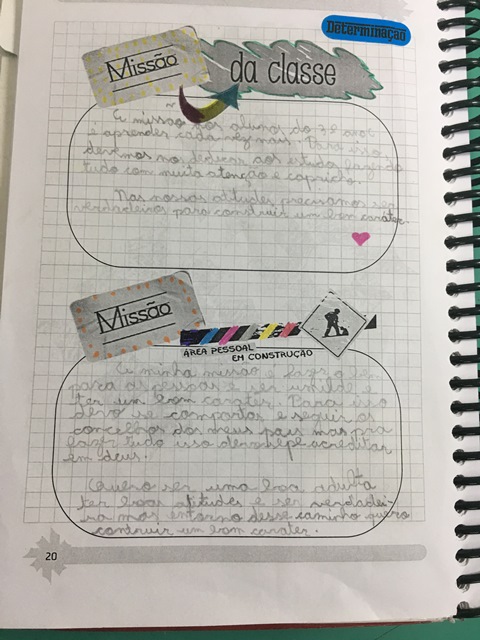 Determinação
Missão
da classe
A missão dos alunos do 3º ano
é aprender cada vez mais. Para isso
devemos nos dedicar aos estudos fazendo
tudo com muita atenção e capricho.
Nas nossas atitudes precisamos ser
verdadeiros para construir um bom caráter.
Missão
ÁREA PESSOAL
EM CONSTRUÇÃO
A minha missão é fazer o bem
para as pessoas e ser umilde e
ter um bom carater. Para isso
devo me comportar e seguir os
concelhos dos meus pais mas pra
fazer tudo isso devo acreditar
em deus.
Quero ser uma boa adulta
ter boas atitudes e ser verdadei-
ra mas entorno desse caminho quero
contruir um bom carater.
20